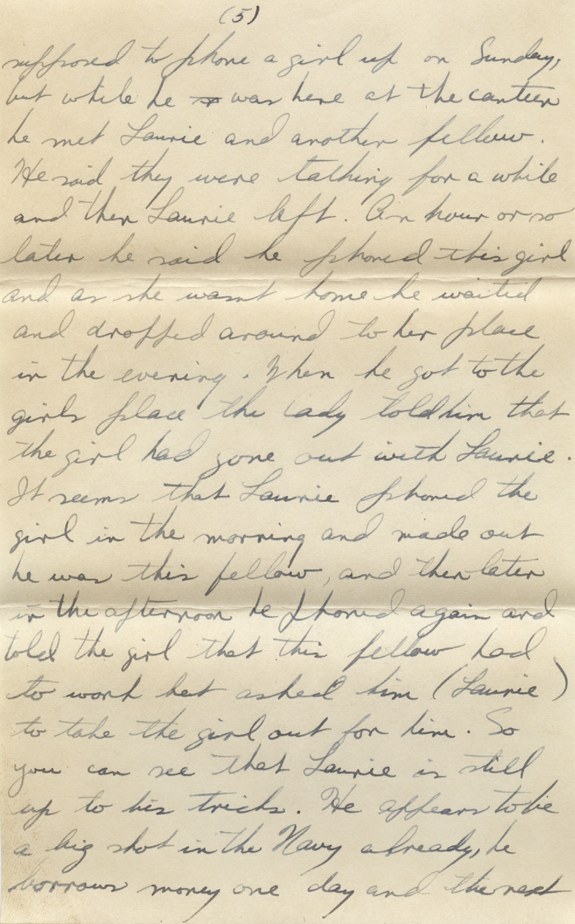 (5)
supposed to phone a girl up on Sunday,
but while he was here at the canteen
he met Laurie and another fellow.
He said they were talking for a while
and then Laurie left. An hour or so
later he said he phoned this girl
and as she wasnt home he waited
and dropped around to her place
in the evening. When he got to the
girls place the lady told him that
the girl had gone out with Laurie.
It seems that Laurie phoned the
girl in the morning and made out
he was this fellow, and then later
in the afternoon he phoned again and
told the girl that this fellow had
to work but asked him (Laurie)
to take the girl out for him. So
you can see that Laurie is still
up to his tricks. He appears to be
a big shot in the Navy already, he
borrows money one day and the next